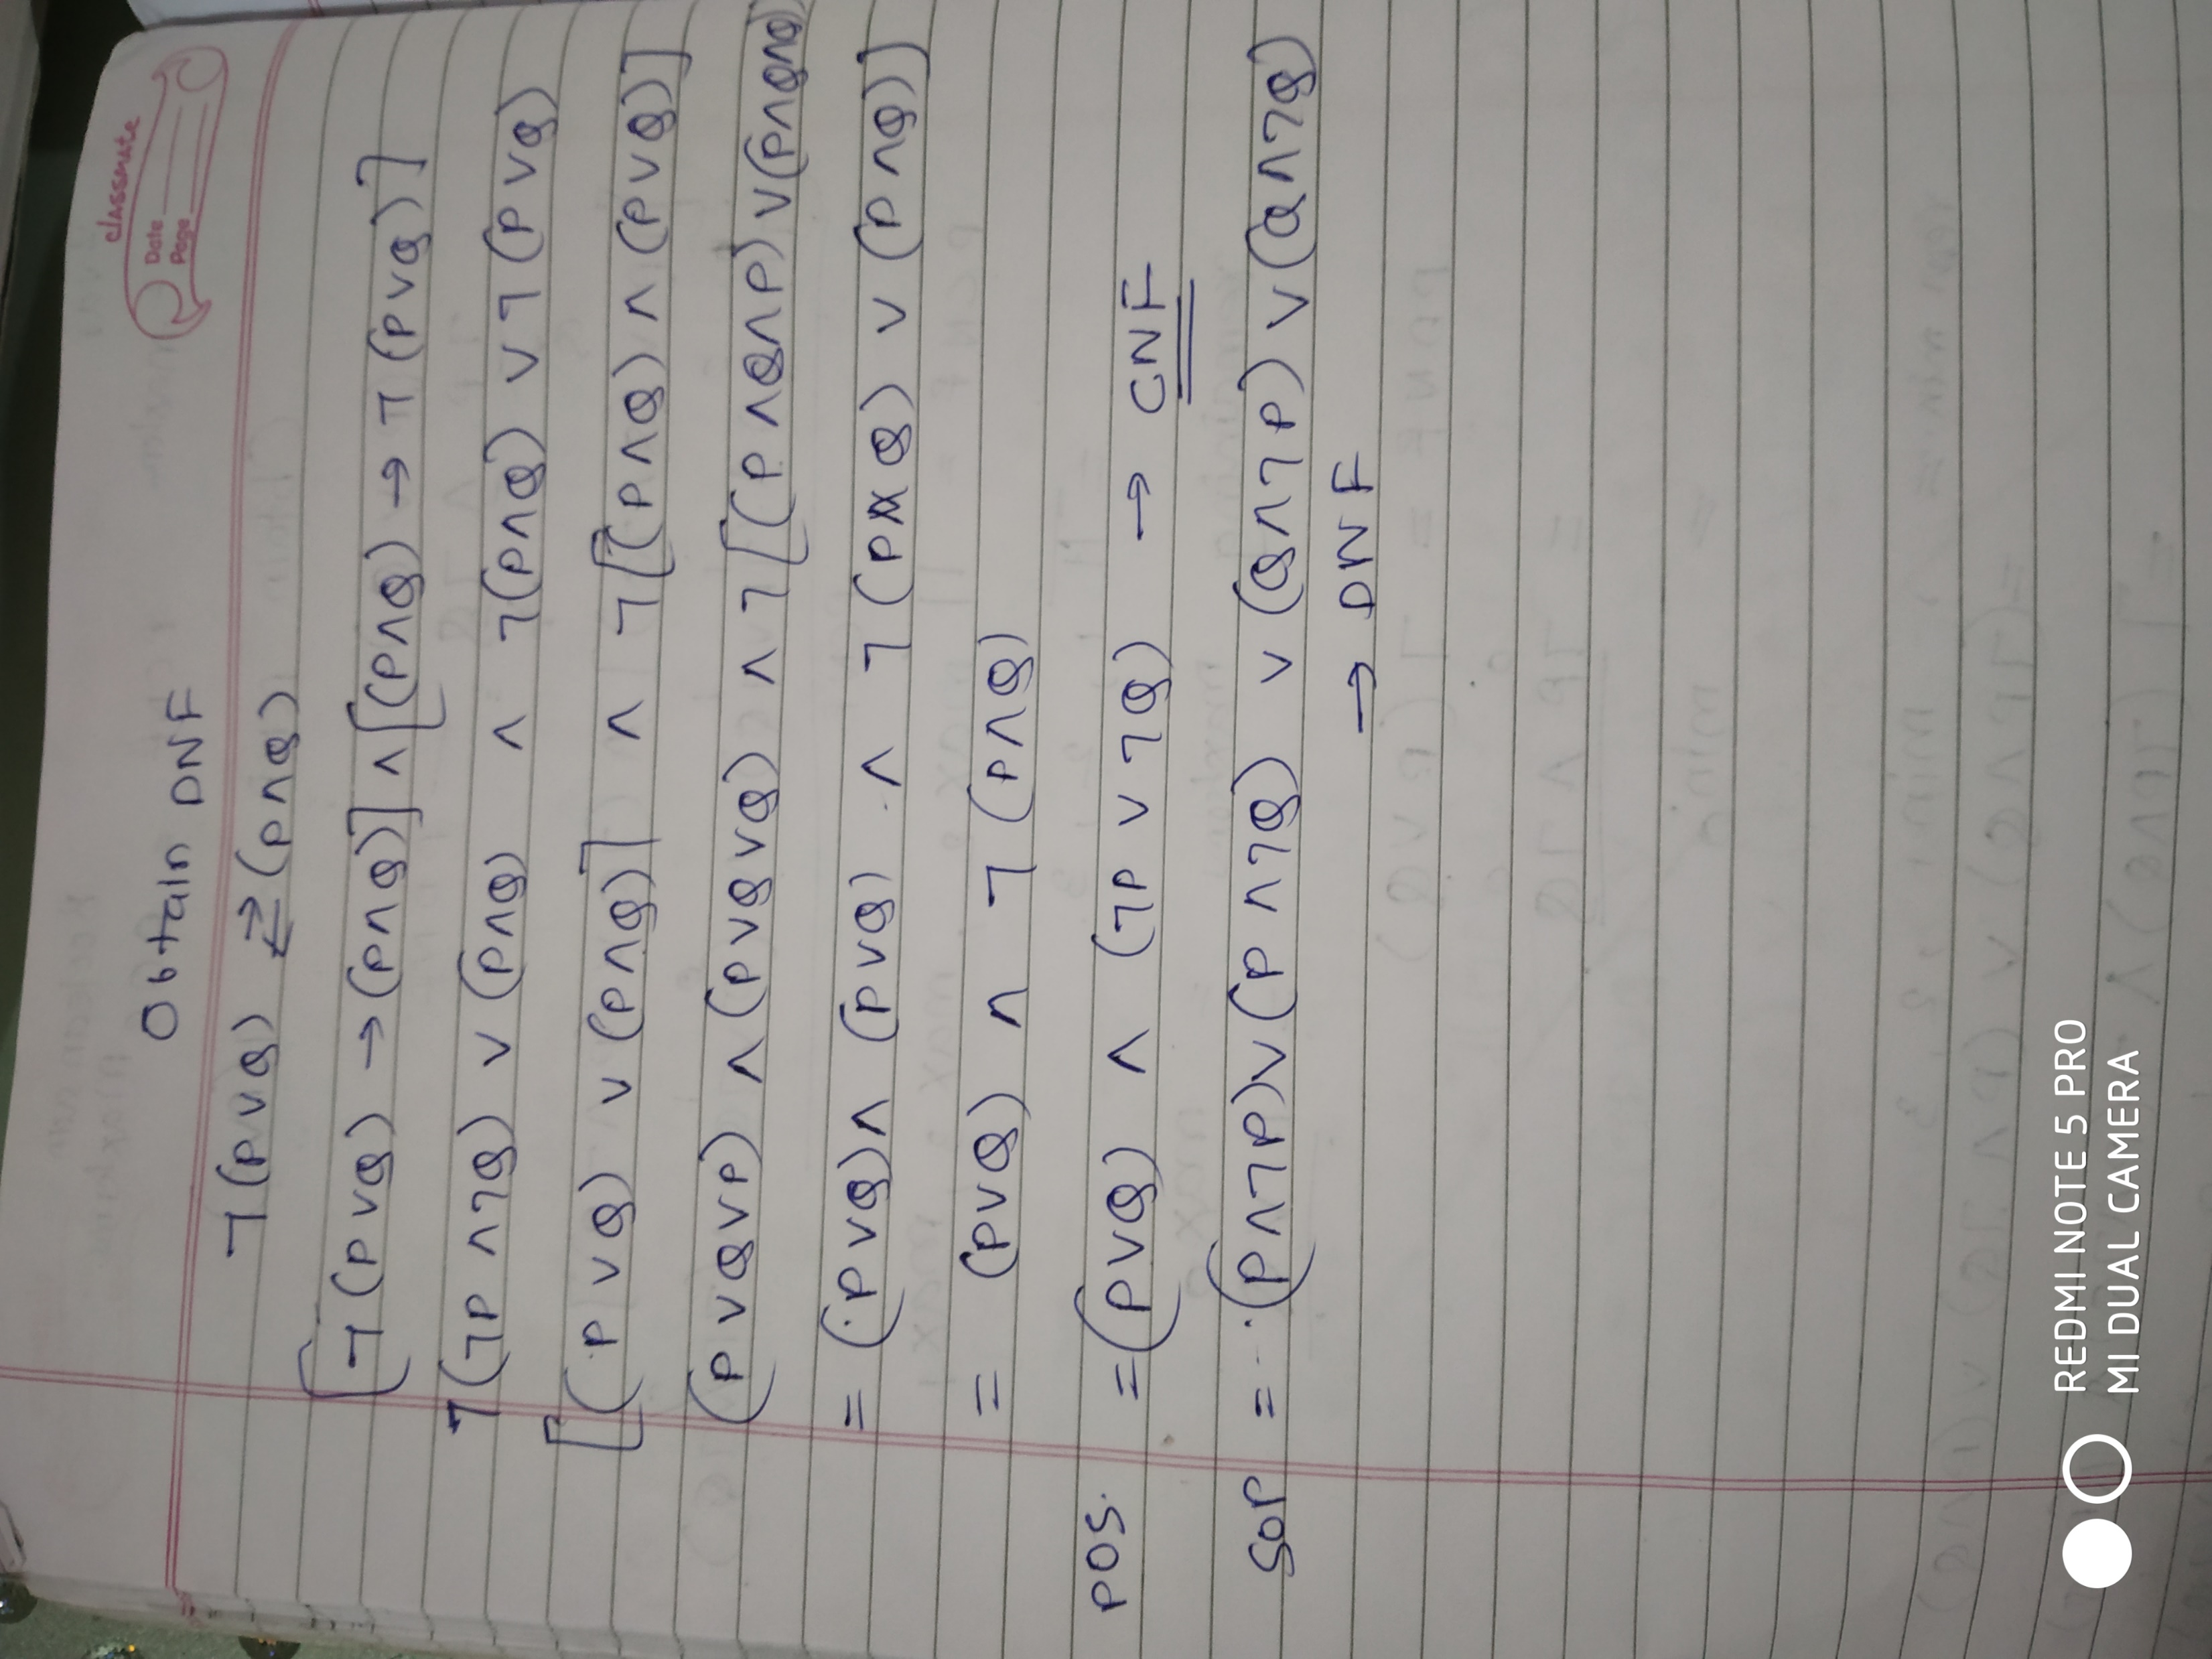 classmate
Date
Page
Obtain DNF
¬(P∨Q) ⇄ (P∧Q)
[¬(P∨Q) → (P∧Q)] ∧ [(P∧Q) → ¬(P∨Q)]
¬(¬P∧¬Q) ∨ (P∧Q) ∧ ¬(P∧Q) ∨ ¬(P∨Q)
[(P∨Q) ∨ (P∧Q)] ∧ ¬[(P∧Q) ∧ (P∨Q)]
(P∨Q∨P) ∧ (P∨Q∨Q) ∧ ¬[(P∧Q∧P) ∨ (P∧Q∧Q)
= (P∨Q) ∧ (P∨Q) ∧ ¬(P∧Q) ∨ (P∧Q)]
= (P∨Q) ∧ ¬(P∧Q)
POS = (P∨Q) ∧ (¬P∨¬Q) → CNF
SOP = (P∧¬P) ∨ (P∧¬Q) ∨ (Q∧¬P) ∨ (Q∧¬Q)
→ DNF
REDMI NOTE 5 PRO
MI DUAL CAMERA